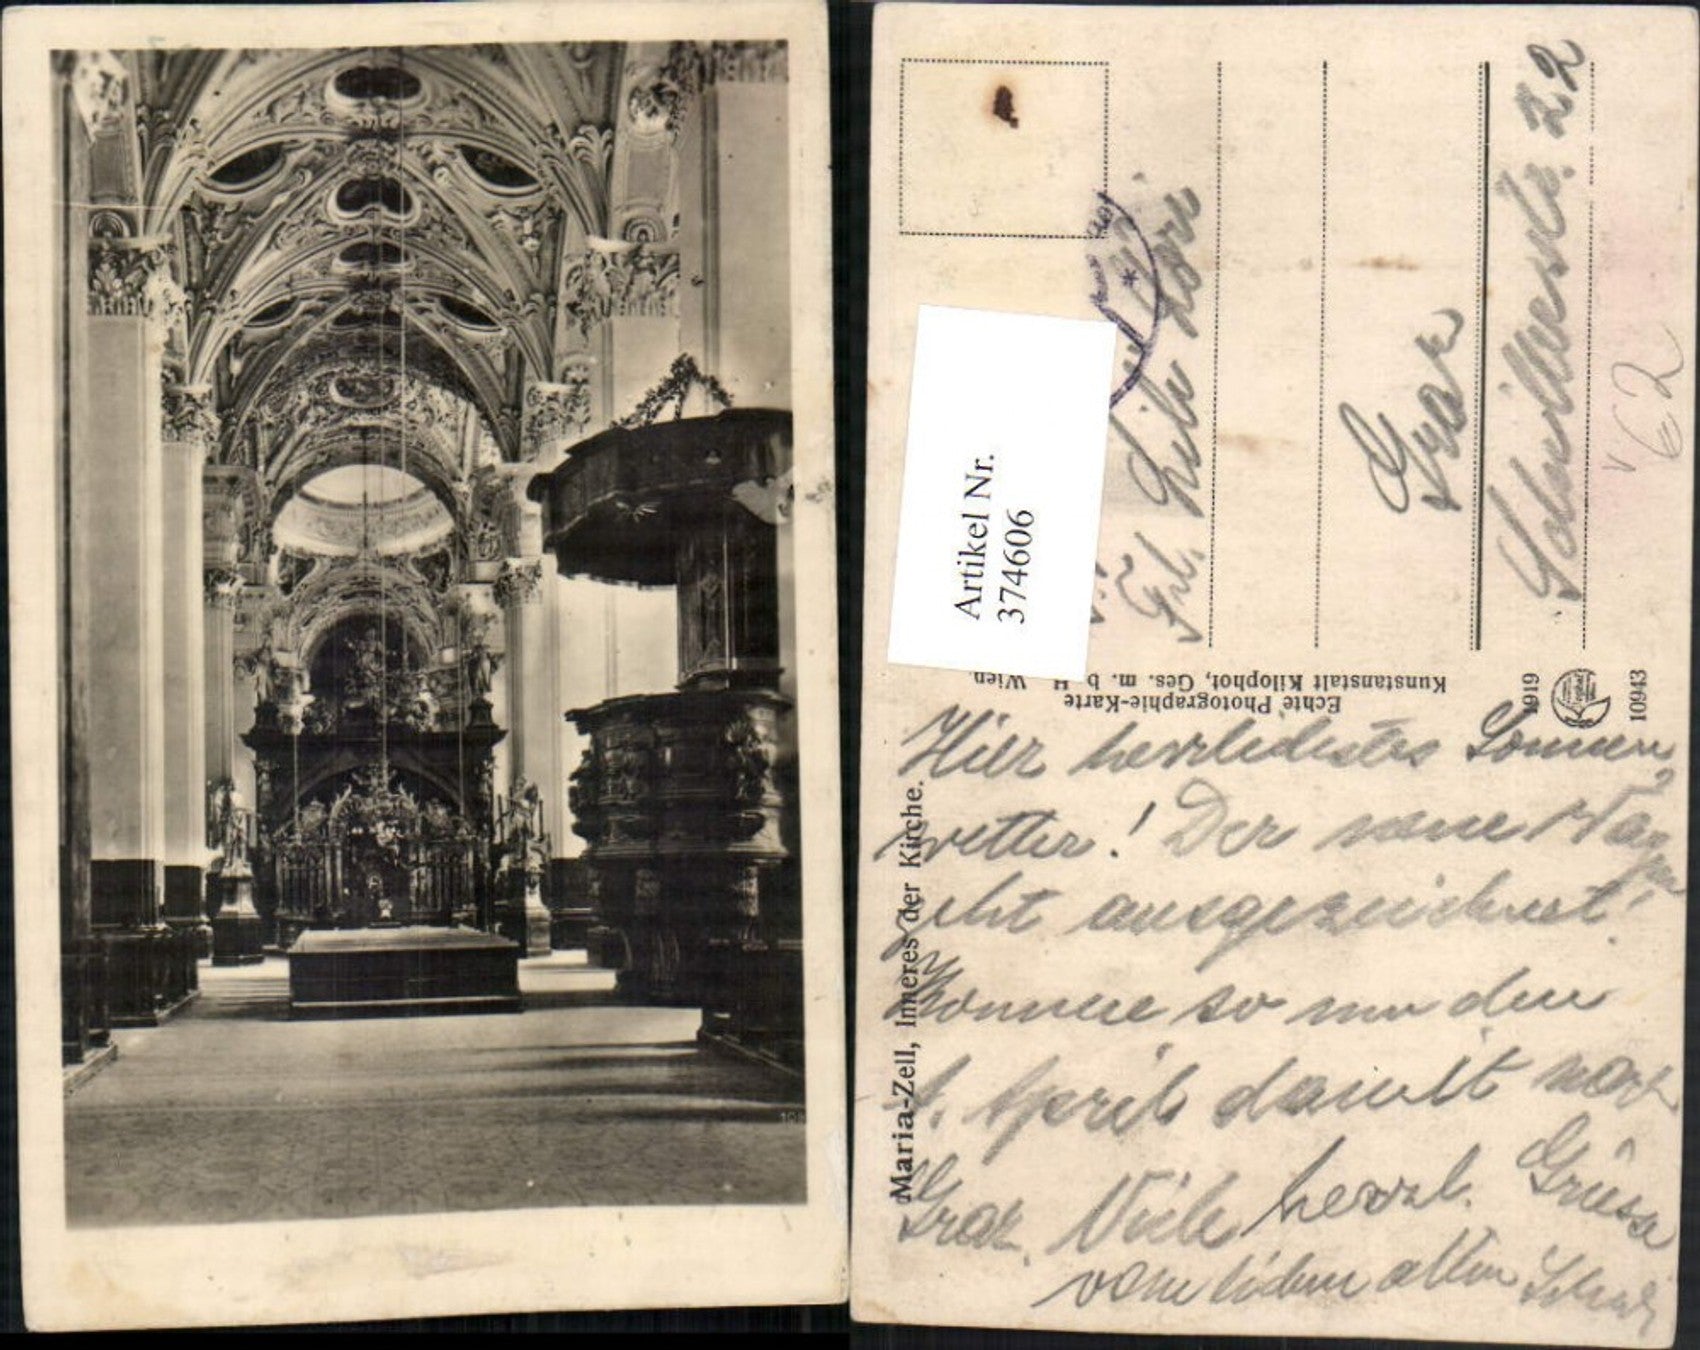 Artikel Nr.
374606
Frl. Lili Lörr
Graz
Schillerstr. 22
62
Echte Photographie-Karte
Kunstanstalt Kilophot, Ges. m. b. H. Wien.
1919
10943
Maria-Zell, Inneres der Kirche.
Hier herrlichstes Sonnen
wetter! Der neue Wagen
geht ausgezeichnet!
Komme so um den
1. April damit nach
Graz. Viele herzl. Grüsse
vom lieben alten
108